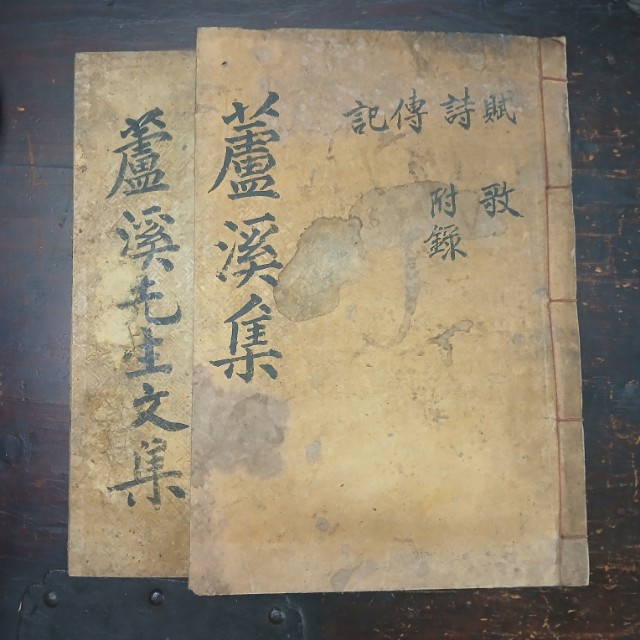 賦 歌
詩 附錄
傳
記
蘆溪集
蘆溪先生文集